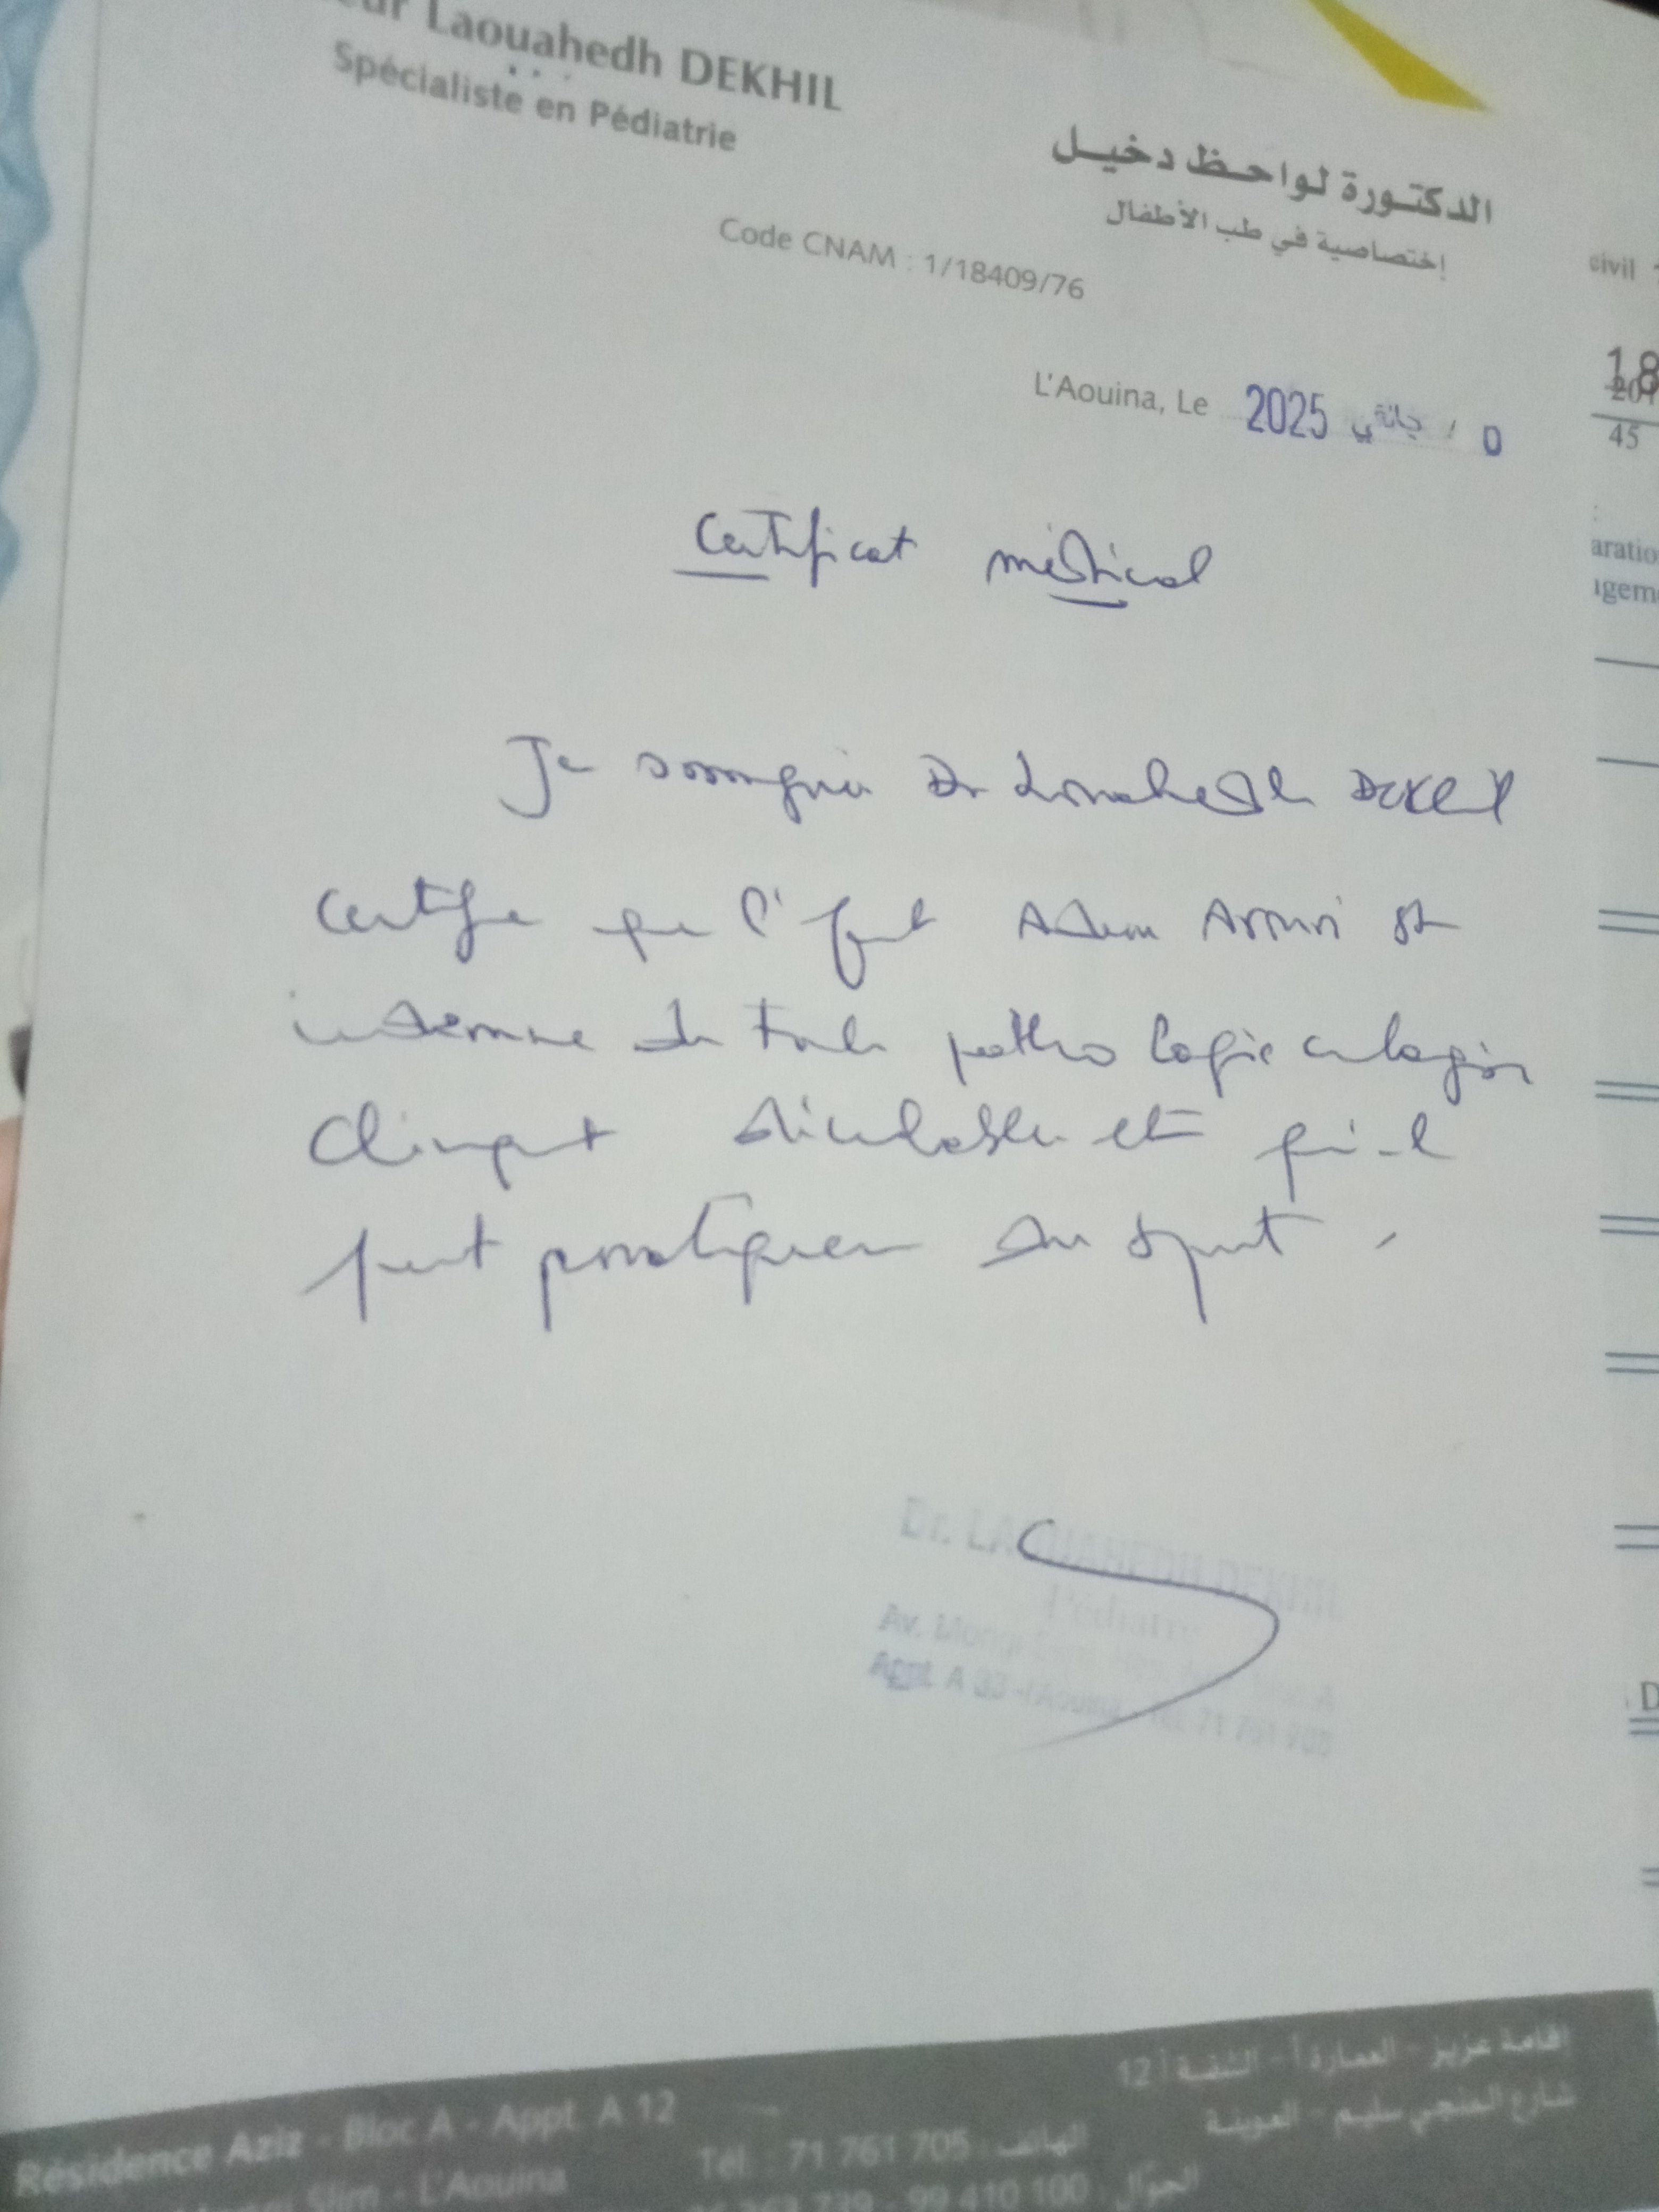 Laouahedh DEKHIL
Spécialiste en Pédiatrie
الدكتورة لواحظ دخيل
إختصاصية في طب الأطفال
Code CNAM : 1/18409/76
civil
L'Aouina, Le 2025
45
Certificat médical
Je soussigné Dr Louahedh DEKHIL
certifie que l'enfant Adem est
indemne de toute pathologie contagieuse
cliniquement décelable et qu'il
peut pratiquer du sport.
Dr. LAOUAHEDH DEKHIL
Pédiatre
Appt. A
إقامة عزيز - العمارة أ - الشقة أ 12
شارع المنجي سليم - العوينة
Résidence Aziz - Bloc A - Appt. A 12
Slim - L'Aouina
Tél. : 71 761 705 : الهاتف
99 410 100 : الجوّال